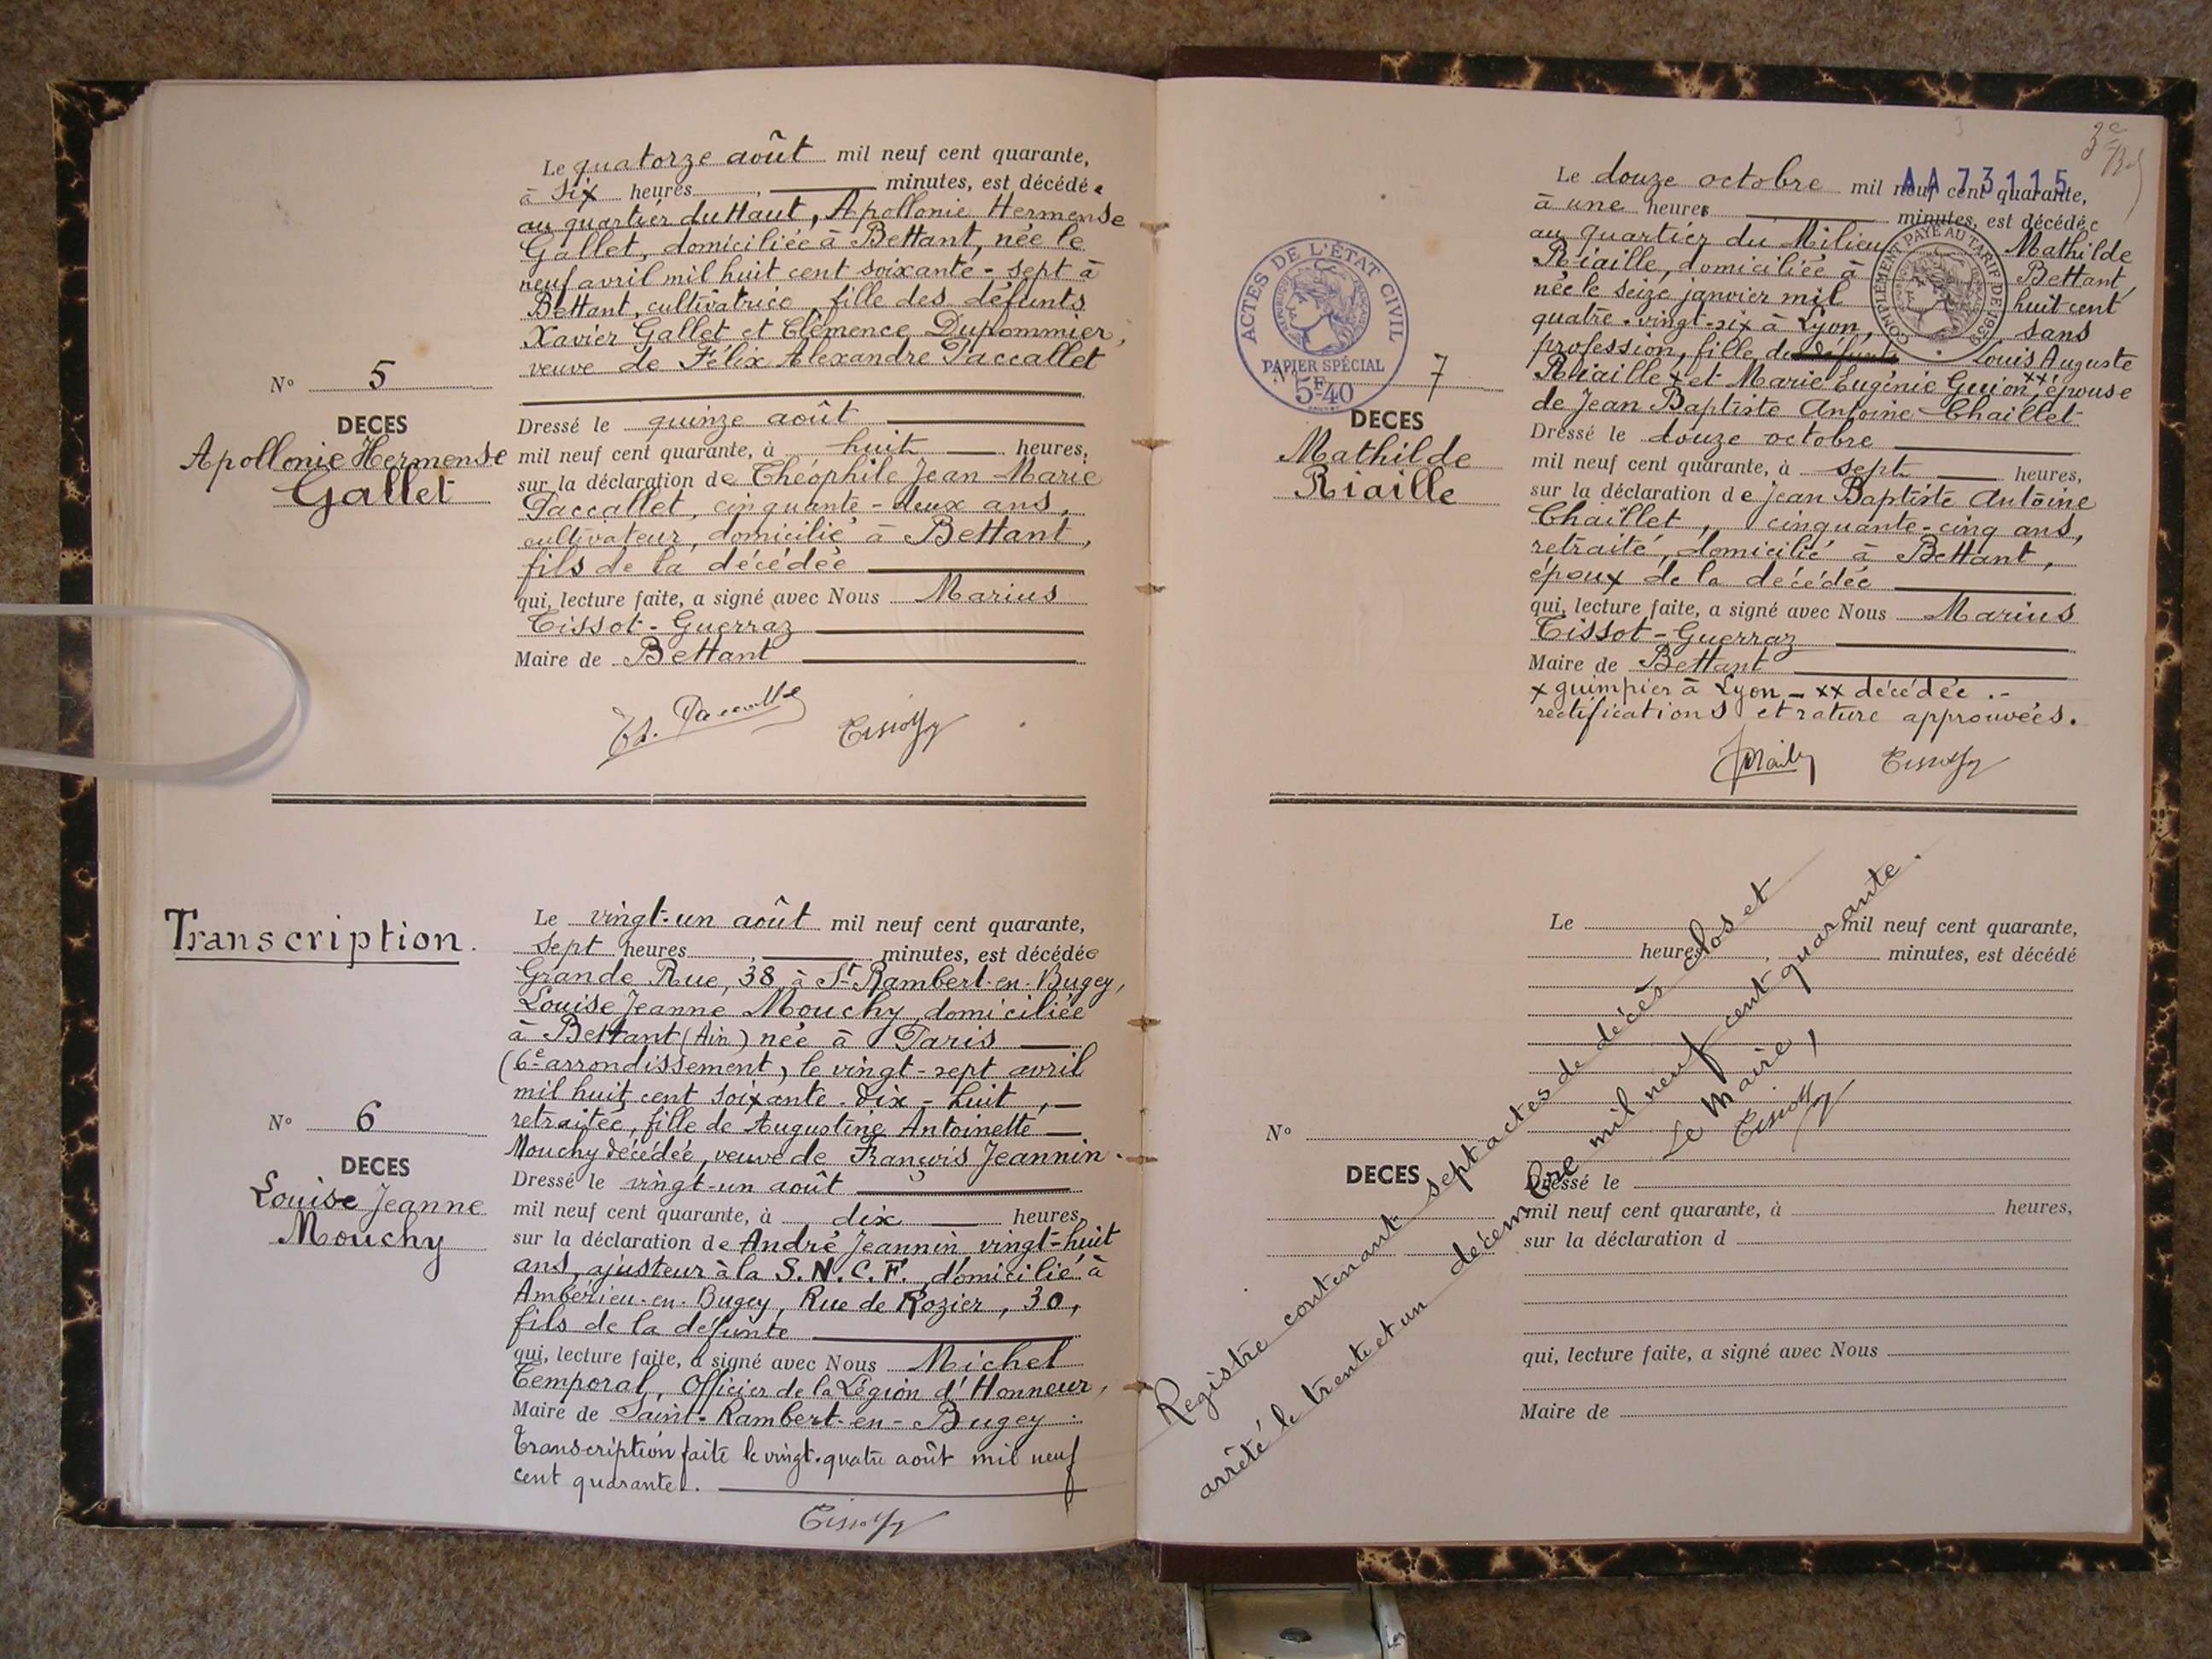 Le quatorze août mil neuf cent quarante,
à six heures, minutes, est décédée
au quartier du Haut, Apollonie Hermense
Gallet, domiciliée à Bettant, née le
neuf avril mil huit cent soixante-sept à
Bettant, cultivatrice, fille des défunts
Xavier Gallet et Clémence Dupommier,
veuve de Félix Alexandre Paccallet
N° 5
DECES
Apollonie Hermense
Gallet
Dressé le quinze août
mil neuf cent quarante, à huit heures,
sur la déclaration de Théophile Jean Marie
Paccallet, cinquante-deux ans,
cultivateur, domicilié à Bettant,
fils de la décédée
qui, lecture faite, a signé avec Nous Marius
Tissot-Guerraz
Maire de Bettant
Transcription.
Le vingt-un août mil neuf cent quarante,
sept heures, minutes, est décédée
Grande Rue, 38, à St Rambert-en-Bugey,
Louise Jeanne Mouchy, domiciliée
à Bettant (Ain) née à Paris
(6e arrondissement), le vingt-sept avril
mil huit cent soixante-dix-huit,
retraitée, fille de Augustine Antoinette
Mouchy décédée, veuve de François Jeannin.
N° 6
DECES
Louise Jeanne
Mouchy
Dressé le vingt-un août
mil neuf cent quarante, à dix heures,
sur la déclaration de André Jeannin vingt-huit
ans, ajusteur à la S.N.C.F. domicilié à
Ambérieu-en-Bugey, Rue de Rozier, 30,
fils de la défunte
qui, lecture faite, a signé avec Nous Michel
Temporal, Officier de la Légion d'Honneur,
Maire de Saint-Rambert-en-Bugey.
Transcription faite le vingt-quatre août mil neuf
cent quarante.
AA 73115
Le douze octobre mil neuf cent quarante,
à une heure minutes, est décédée
au quartier du Milieu Mathilde
Riaille, domiciliée à Bettant,
née le seize janvier mil huit cent
quatre-vingt-six à Lyon, sans
profession, fille de défunts Louis Auguste
Riaille x et Marie Eugénie Guion xx, épouse
de Jean Baptiste Antoine Chaillet
ACTES DE L'ÉTAT CIVIL
PAPIER SPÉCIAL
5F40
COMPLÉMENT PAYÉ AU TARIF DE 1938
7
DECES
Mathilde
Riaille
Dressé le douze octobre
mil neuf cent quarante, à sept heures,
sur la déclaration de Jean Baptiste Antoine
Chaillet, cinquante-cinq ans,
retraité, domicilié à Bettant,
époux de la décédée
qui, lecture faite, a signé avec Nous Marius
Tissot-Guerraz
Maire de Bettant
x guimpier à Lyon - xx décédée.-
rectifications et rature approuvées.
Le mil neuf cent quarante,
heures, minutes, est décédé
N°
DECES
Dressé le
mil neuf cent quarante, à heures,
sur la déclaration d
qui, lecture faite, a signé avec Nous
Maire de
Registre contenant sept actes de décès clos et
arrêté le trente et un décembre mil neuf cent quarante.
Le Maire,